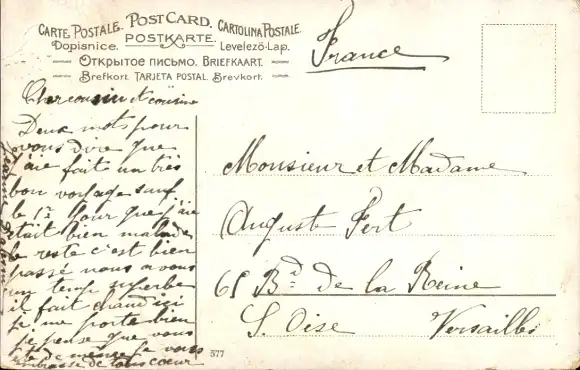 CARTE POSTALE. POST CARD. CARTOLINA POSTALE.
Dopisnice. POSTKARTE. Levelező-Lap.
ОТКРЫТОЕ ПИСЬМО. BRIEFKAART.
Brefkort. TARJETA POSTAL. Brevkort.
France
Cher cousin et cousine
Deux mots pour
vous dire que
j'aie fait un très
bon voyage sauf
le 1er jour que j'aie
était bien malade
le reste c'est bien
passé nous avons
un temps superbe
il fait chaud ici
je me porte bien
je pense que vous
de même je vous
embrasse de tous coeur
Monsieur et Madame
Auguste Fert
65 Bd de la Reine
S. Oise Versailles
577